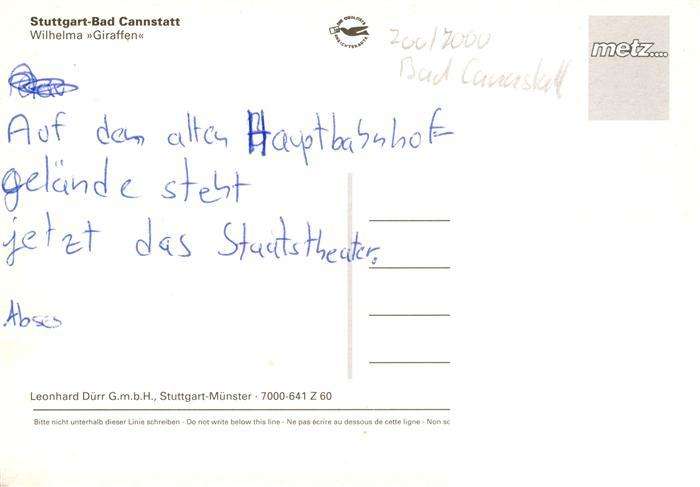 Stuttgart-Bad Cannstatt
Wilhelma »Giraffen«
Zoo/2000
Bad Cannstatt
metz....
Auf dem alten Hauptbahnhof=
gelände steht
jetzt das Staatstheater.
Leonhard Dürr G.m.b.H., Stuttgart-Münster · 7000-641 Z 60
Bitte nicht unterhalb dieser Linie schreiben - Do not write below this line - Ne pas écrire au dessous de cette ligne - Non sc